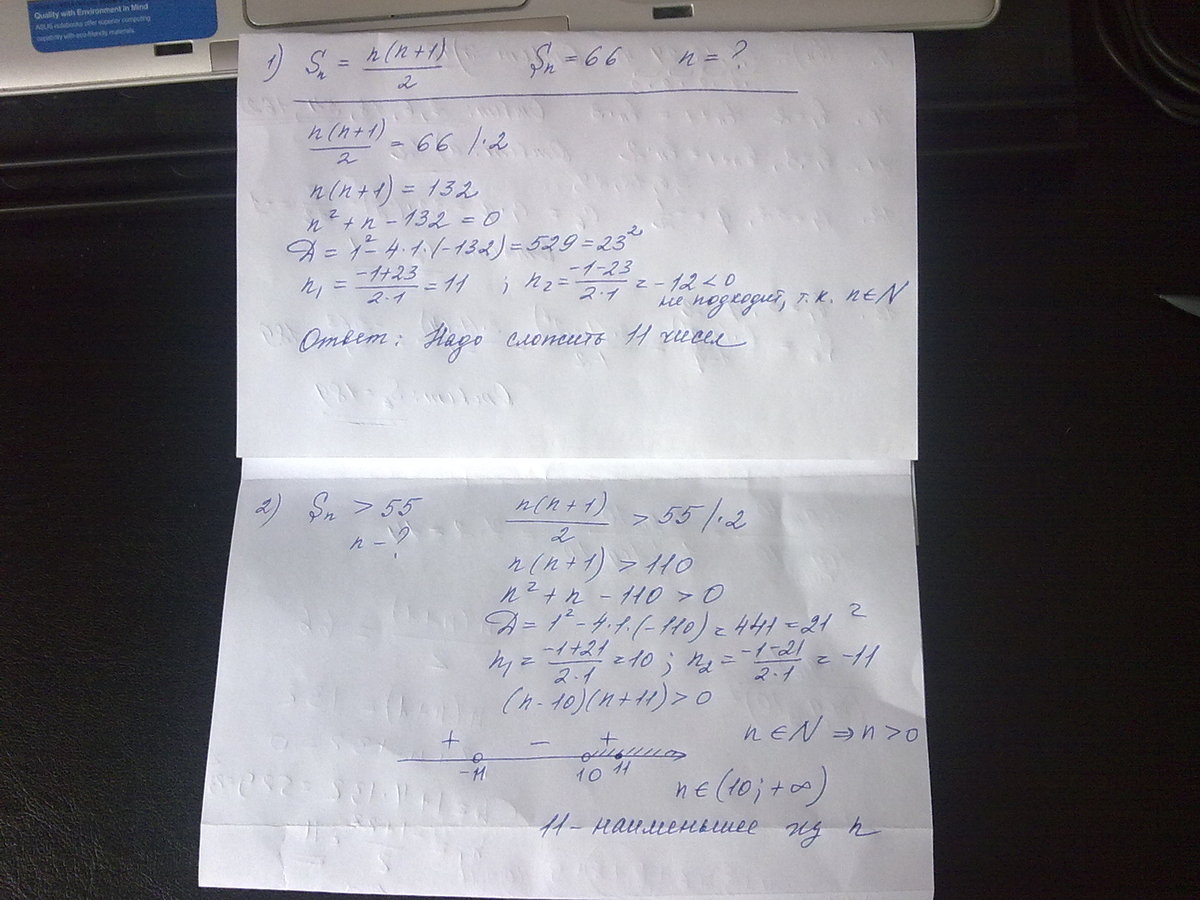 Quality with Environment in Mind
ASUS notebooks offer superior computing
capability with eco-friendly materials.
1) Sn = n(n+1)/2 Sn = 66 n = ?
n(n+1)/2 = 66 /·2
n(n+1) = 132
n² + n - 132 = 0
Д = 1² - 4·1·(-132) = 529 = 23²
n₁ = (-1+23)/(2·1) = 11 ; n₂ = (-1-23)/(2·1) = -12 < 0
не подходит, т.к. n∈N
Ответ: Надо сложить 11 чисел
2) Sn > 55 n(n+1)/2 > 55 /·2
n - ?
n(n+1) > 110
n² + n - 110 > 0
Д = 1² - 4·1·(-110) = 441 = 21²
n₁ = (-1+21)/(2·1) = 10 ; n₂ = (-1-21)/(2·1) = -11
(n-10)(n+11) > 0
+ - + n∈N ⇒ n > 0
-11 10 11
n∈(10; +∞)
11 - наименьшее из n